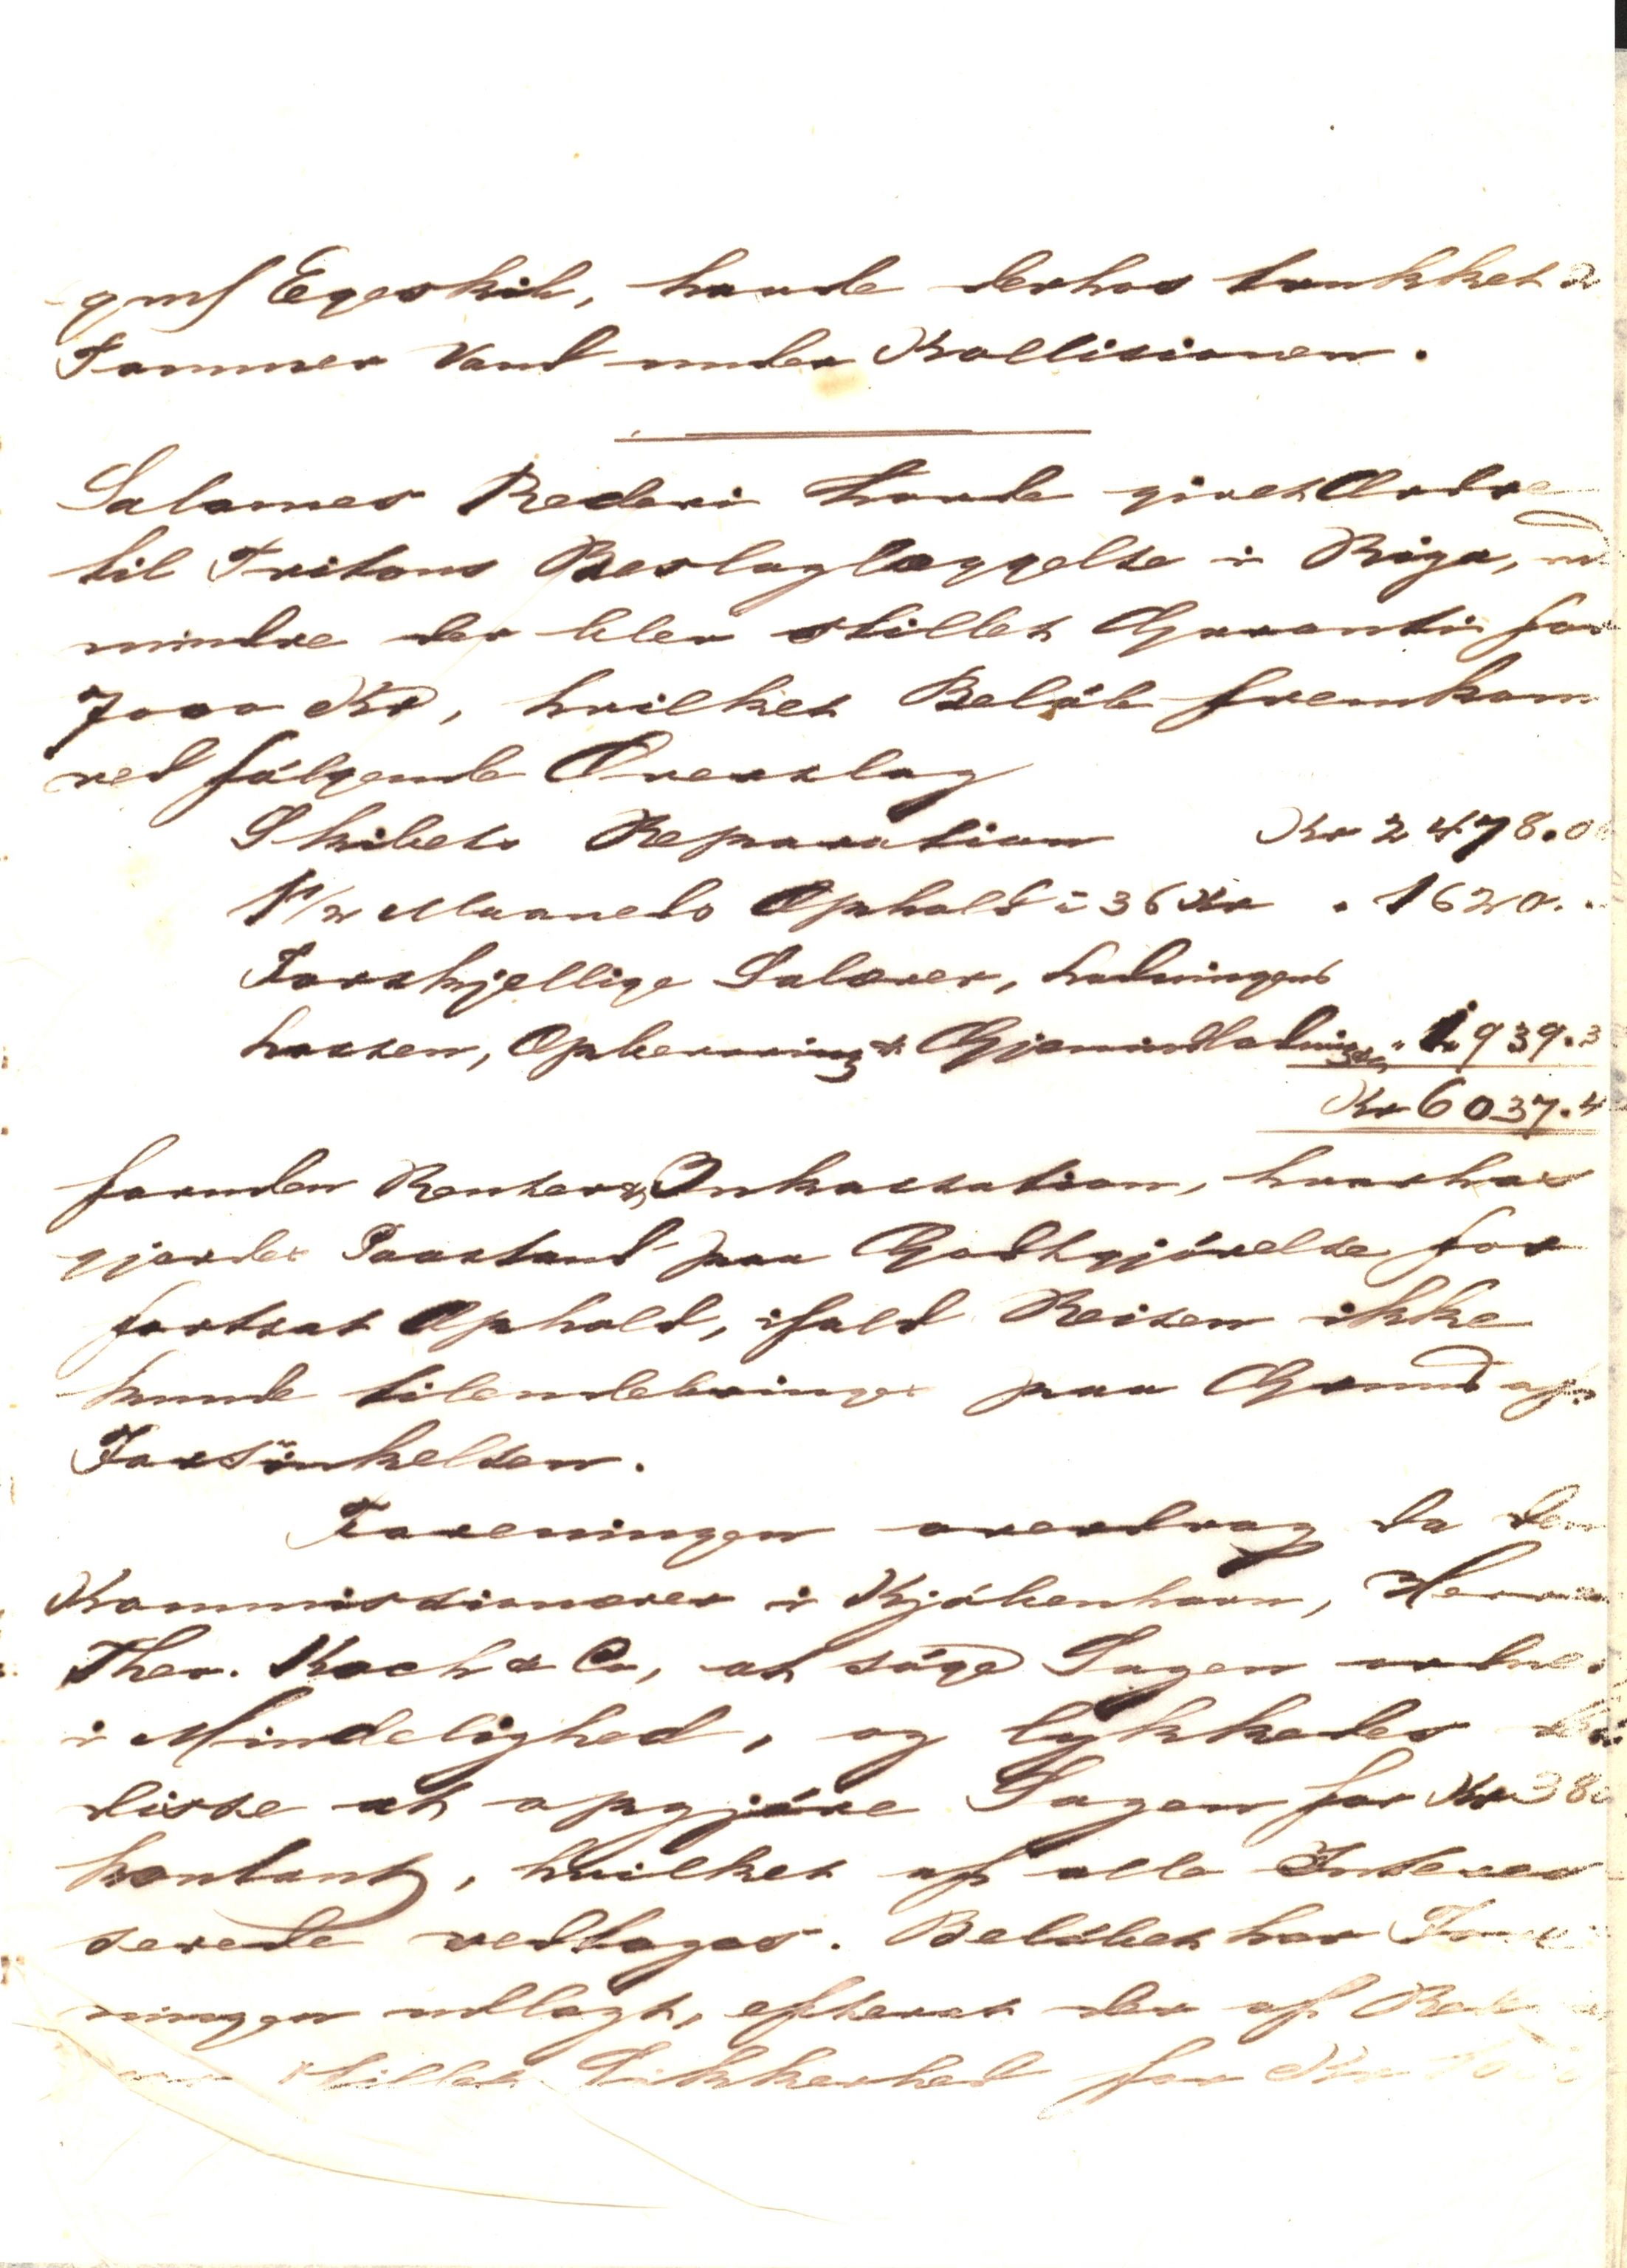 Egeskib, havde derhos trukket 2
Tommer Vand under Kollisionen.
Salomes Rederi havde givet Ordre
til Tritons Beslaglæggelse i Riga, med
mindre der blev stillet Garanti for
7000 Kr, hvilket Beløb fremkom
ved følgende Overslag
Skibets Reparation Kr 2478.0
1 1/2 Maaneds Ophold à 36 Kr " 1620. "
Forskjellige Salærer, Ladningens
Lossen, Opbevaring & Gjenindladning " 1939.3
Kr 6037.4
foruden Renter & Inkassation, hvorhos
gjordes Paastand paa Godtgjørelse for
fortsat Ophold, ifald Reisen ikke
kunde tilendebringes paa Grund af
Forsinkelsen.
Foreningen overdrog da den
Kommissionærer i Kjøbenhavn, Herrer
Ther. Koch & Co, at søge Sagen ordnet
i Mindelighed, og lykkedes det
disse at opgjøre Sagen for Kr 380
kontant, hvilket af alle Interes
serede vedtoges. Beløbet har Fore
ningen udlagt, efterat der af Rederi
stillet Sikkerhed for Kr